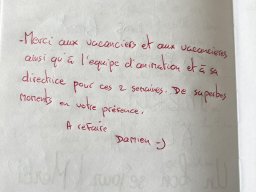 -Merci aux vacanciers et aux vacancières
ainsi qu'à l'equipe d'animation et à sa
directrice pour ces 2 semaines. De superbes
moments en votre présence.
A refaire
Damien =)